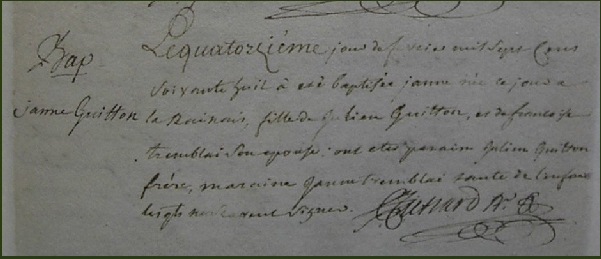 Bap
janne Guitton
Lequatorziéme jour de fevrier mil sept cens
soixante huit à eté baptisée janne née ce jour a
la fille de Gulien Guitton, et de francoise
tremblai son epouse; ont etes parain Gulien Guitton
frére, maraine Janne tremblai tante de l'enfant
lesqls ne scavent signer.